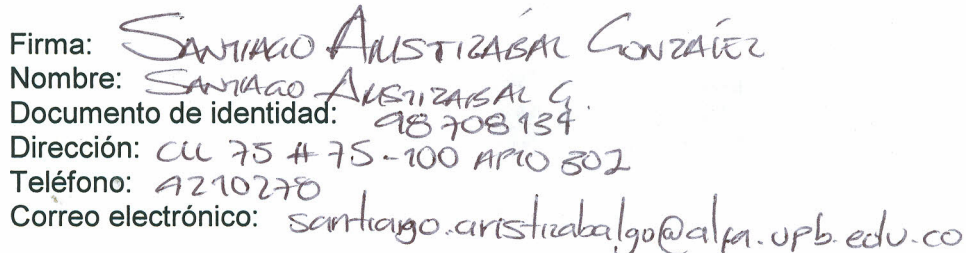 Firma: SANTIAGO ARISTIZÁBAL GONZÁLEZ
Nombre: SANTIAGO ARISTIZABAL G.
Documento de identidad: 98708134
Dirección: CLL 75 # 75-100 APTO 802
Teléfono: 4210278
Correo electrónico: santiago.aristizabalgo@alfa.upb.edu.co